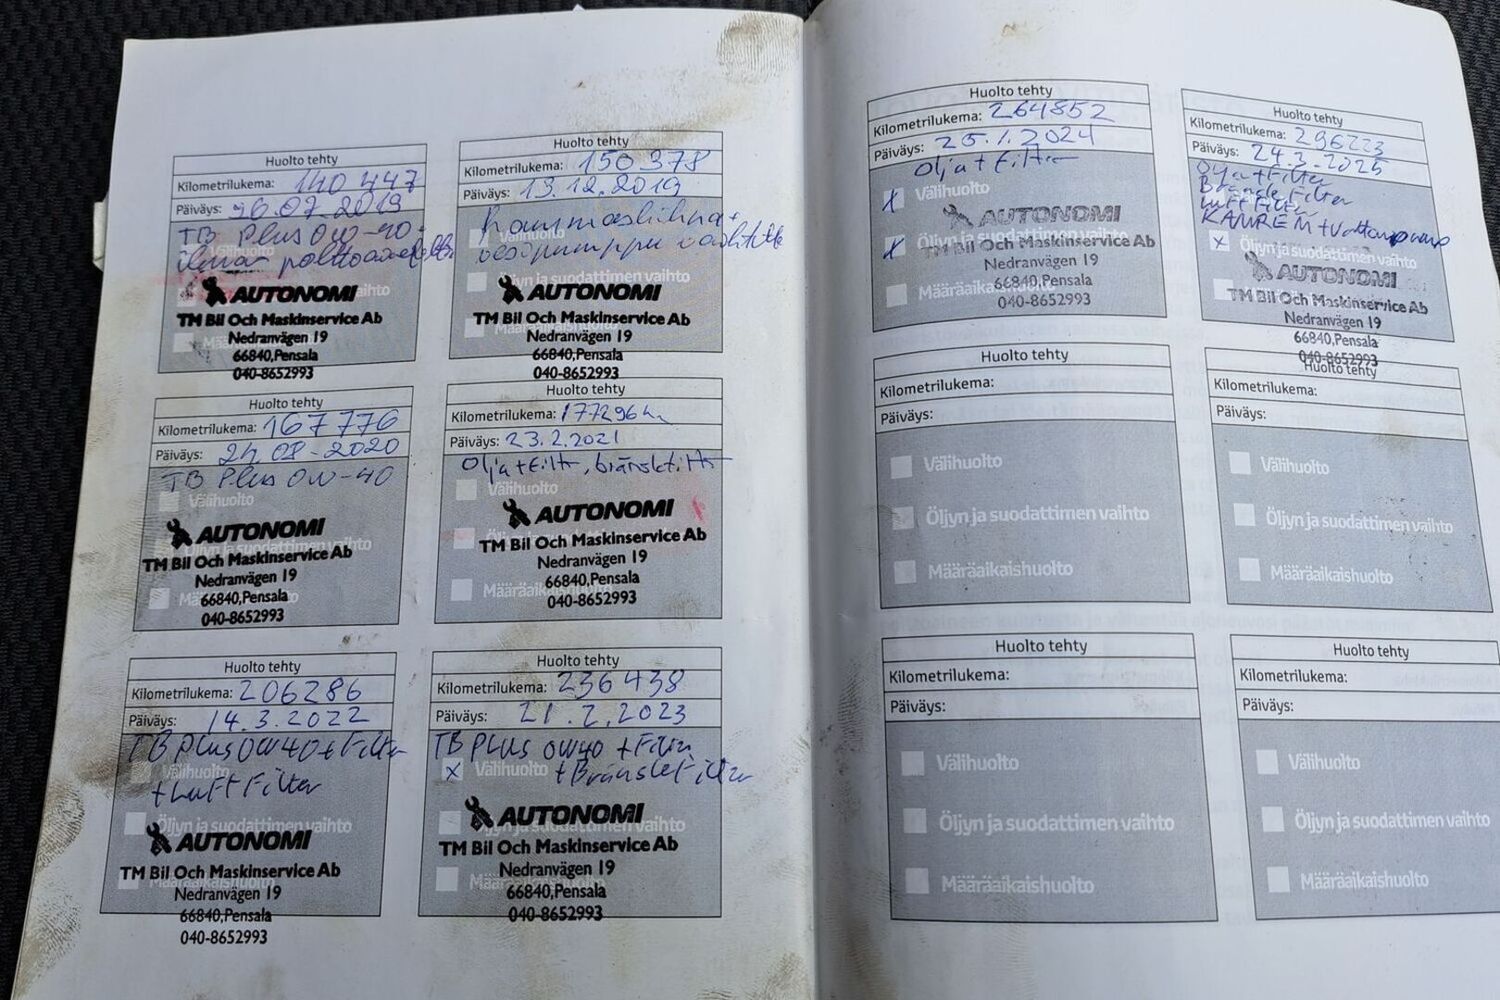 Huolto tehty
Kilometrilukema: 140 447
Päiväys: 26.07.2019
TB Plus 0W-40.
ilma-
AUTONOMI
TM Bil Och Maskinservice Ab
Nedranvägen 19
66840,Pensala
040-8652993
Huolto tehty
Kilometrilukema: 150 378
Päiväys: 13.12.2019
vesipumppu
Öljyn ja suodattimen vaihto
AUTONOMI
TM Bil Och Maskinservice Ab
Nedranvägen 19
66840,Pensala
040-8652993
Huolto tehty
Kilometrilukema: 167 776
Päiväys: 24.08-2020
TB Plus 0W-40
Välihuolto
AUTONOMI
Öljyn ja suodattimen vaihto
TM Bil Och Maskinservice Ab
Nedranvägen 19
66840,Pensala
040-8652993
Huolto tehty
Kilometrilukema: 177296km
Päiväys: 23.2.2021
Olja+Filt
Välihuolto
AUTONOMI
TM Bil Och Maskinservice Ab
Nedranvägen 19
66840,Pensala
040-8652993
Huolto tehty
Kilometrilukema: 206286
Päiväys: 14.3.2022
TB PLUS 0W40+Filter
Välihuolto
+Luft Filter
Öljyn ja suodattimen vaihto
AUTONOMI
TM Bil Och Maskinservice Ab
Nedranvägen 19
66840,Pensala
040-8652993
Huolto tehty
Kilometrilukema: 236438
Päiväys: 21.2.2023
TB PLUS 0W40 +Filter
x Välihuolto +BränsleFilter
AUTONOMI
Öljyn ja suodattimen vaihto
TM Bil Och Maskinservice Ab
Nedranvägen 19
66840,Pensala
040-8652993
Huolto tehty
Kilometrilukema: 264852
Päiväys: 25.1.2024
Olja+Filter
x Välihuolto
AUTONOMI
x Öljyn ja suodattimen vaihto
TM Bil Och Maskinservice Ab
Nedranvägen 19
66840,Pensala
Määräaikaishuolto
040-8652993
Huolto tehty
Kilometrilukema: 296223
Päiväys: 24.2.2025
Olja+Filter
Bränsle Filter
Luft Filter
KAMREM+Vattenpump
x Öljyn ja suodattimen vaihto
AUTONOMI
TM Bil Och Maskinservice Ab
Nedranvägen 19
66840,Pensala
040-8652993
Huolto tehty
Kilometrilukema:
Päiväys:
Välihuolto
Öljyn ja suodattimen vaihto
Määräaikaishuolto
Huolto tehty
Kilometrilukema:
Päiväys:
Välihuolto
Öljyn ja suodattimen vaihto
Määräaikaishuolto
Huolto tehty
Kilometrilukema:
Päiväys:
Välihuolto
Öljyn ja suodattimen vaihto
Määräaikaishuolto
Huolto tehty
Kilometrilukema:
Päiväys:
Välihuolto
Öljyn ja suodattimen vaihto
Määräaikaishuolto